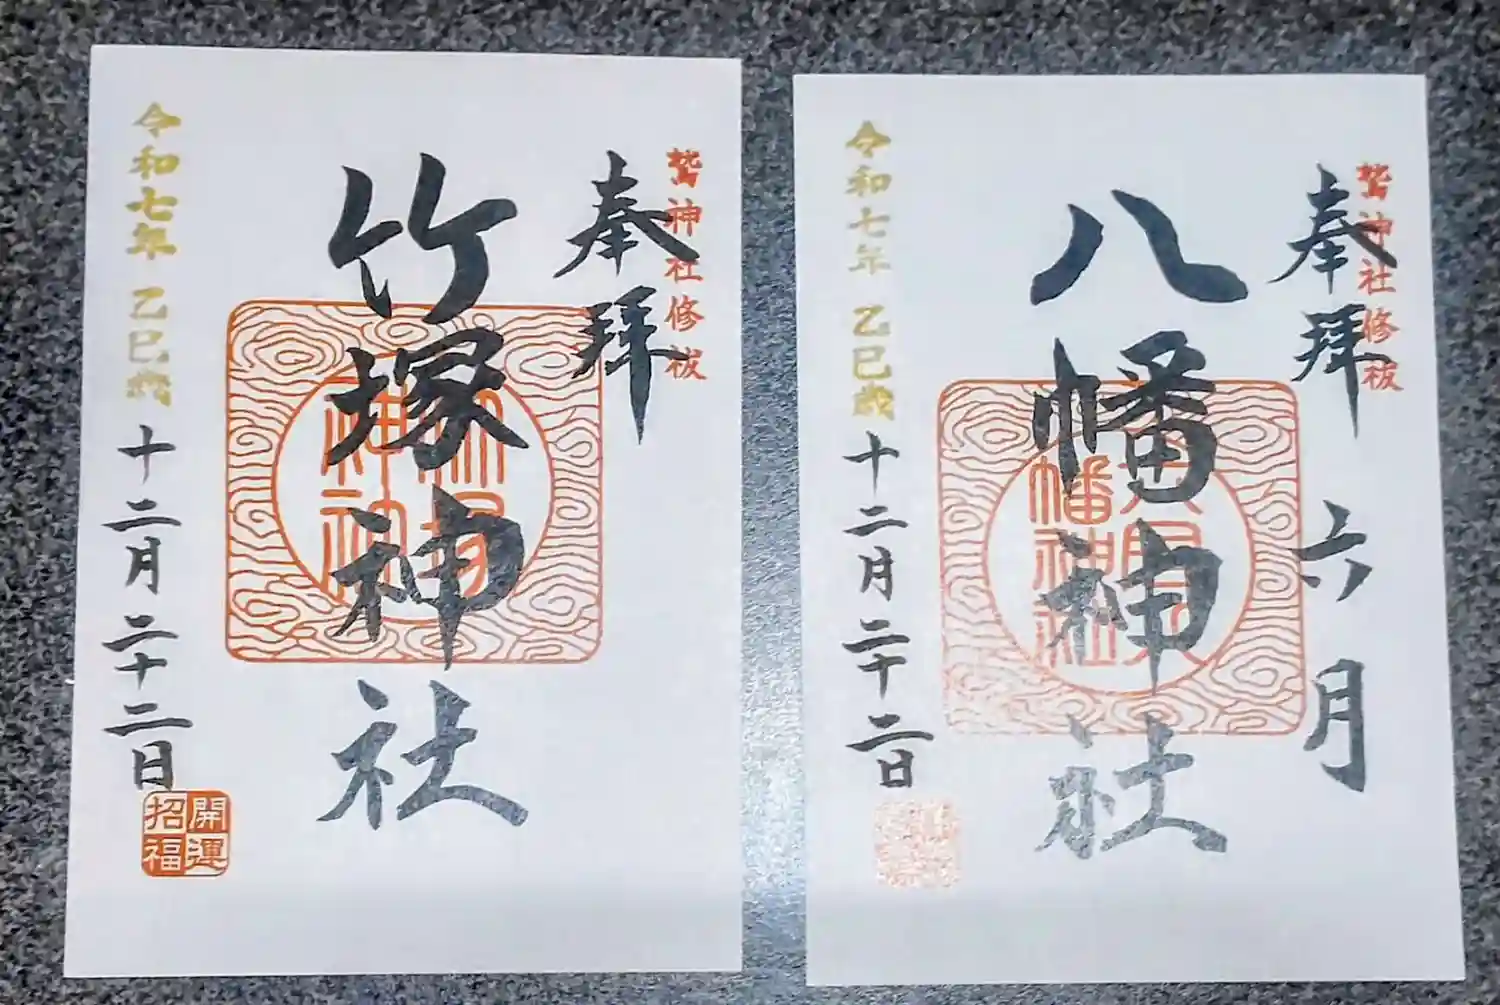 鷲神社修祓
奉拝
竹塚神社
令和七年 乙巳歳
十二月二十二日
開運
招福
鷲神社修祓
奉拝 六月
八幡神社
令和七年 乙巳歳
十二月二十二日